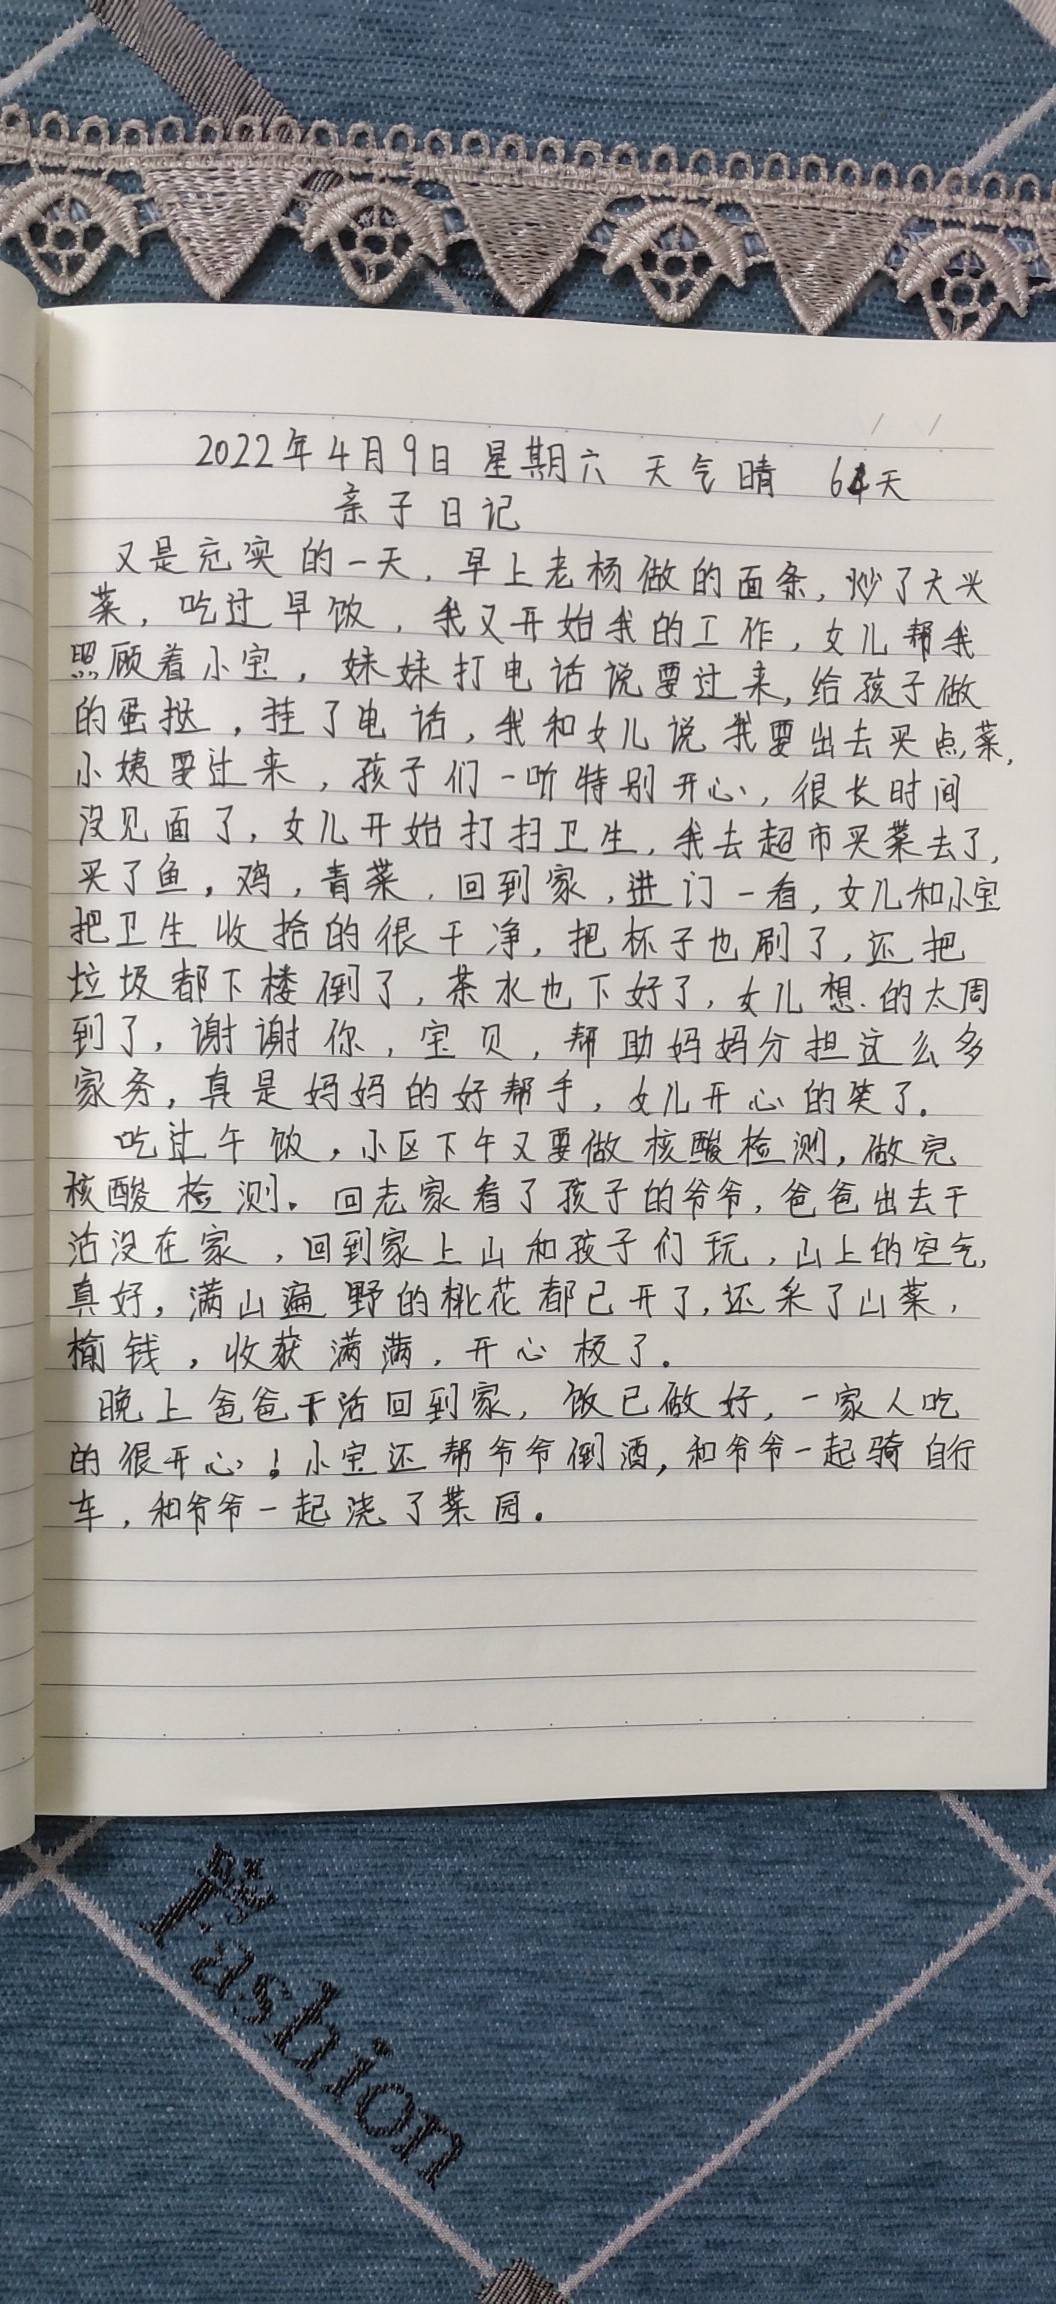 2022年4月9日 星期六 天气晴 64天
亲子日记
又是充实的一天，早上老杨做的面条，炒了大兴
菜，吃过早饭，我又开始我的工作，女儿帮我
照顾着小宝，妹妹打电话说要过来，给孩子做
的蛋挞，挂了电话，我和女儿说我要出去买点菜，
小姨要过来，孩子们一听特别开心，很长时间
没见面了，女儿开始打扫卫生，我去超市买菜去了，
买了鱼，鸡，青菜，回到家，进门一看，女儿和小宝
把卫生收拾的很干净，把杯子也刷了，还把
垃圾都下楼倒了，茶水也下好了，女儿想的太周
到了，谢谢你，宝贝，帮助妈妈分担这么多
家务，真是妈妈的好帮手，女儿开心的笑了。
吃过午饭，小区下午又要做核酸检测，做完
核酸检测。回老家看了孩子的爷爷，爸爸出去干
活没在家，回到家上山和孩子们玩，山上的空气
真好，满山遍野的桃花都已开了，还采了山菜，
榆钱，收获满满，开心极了。
晚上爸爸干活回到家，饭已做好，一家人吃
的很开心！小宝还帮爷爷倒酒，和爷爷一起骑自行
车，和爷爷一起浇了菜园。
Fashion